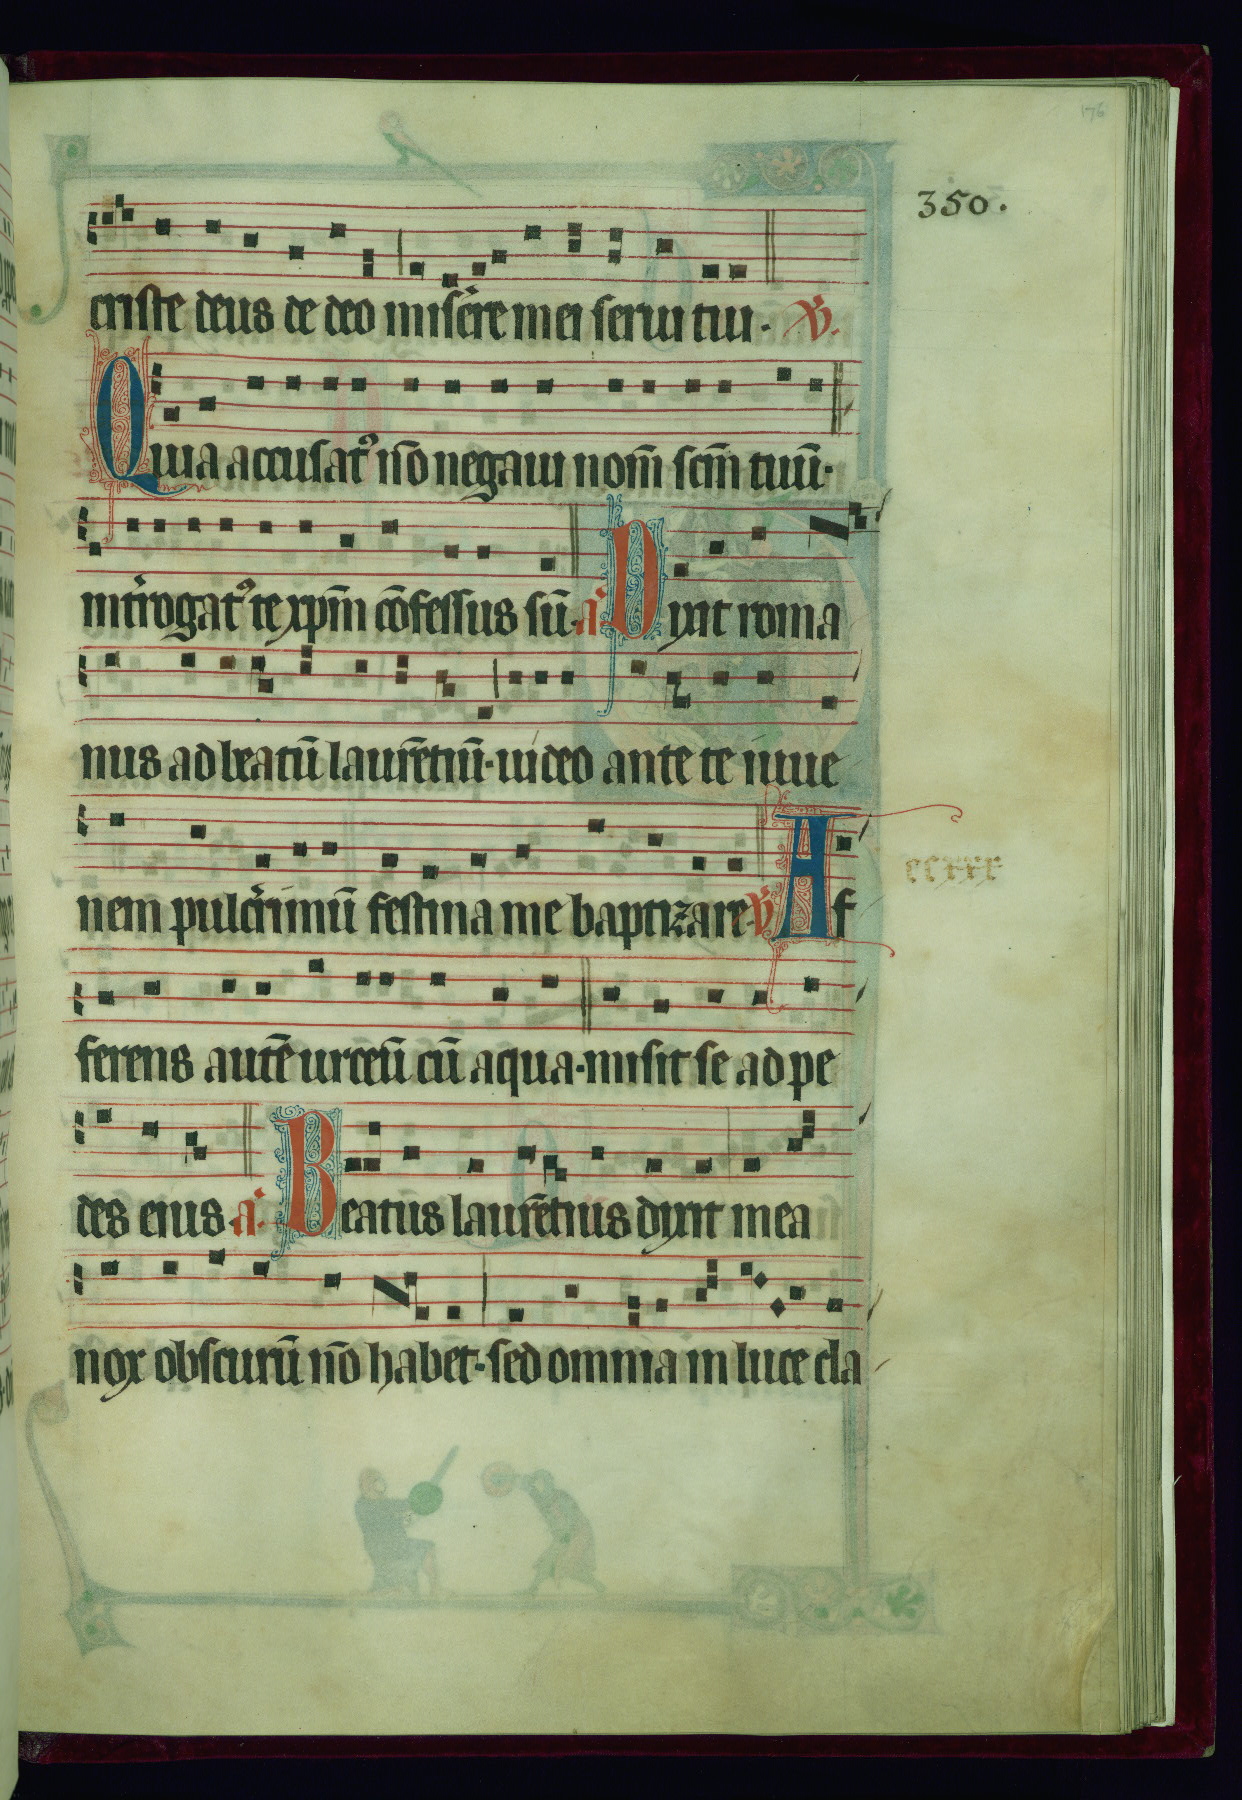 176
350.
criste deus de deo misere mei serui tui. V.
Quia accusat⁹ nō negaui nom̄ scm̄ tuū.
int̄rogat⁹ te xp̄m cōfessus sū. a Dixit roma
nus ad beatū laurētiū. uideo ante te iuue
nem pulcrimū festina me baptizare. V Af
ferens autē urceū cū aqua. misit se ad pe
des eius a Beatus laurētius dixit mea
nox obscurū nō habet. sed omnia in luce cla
ccxxx